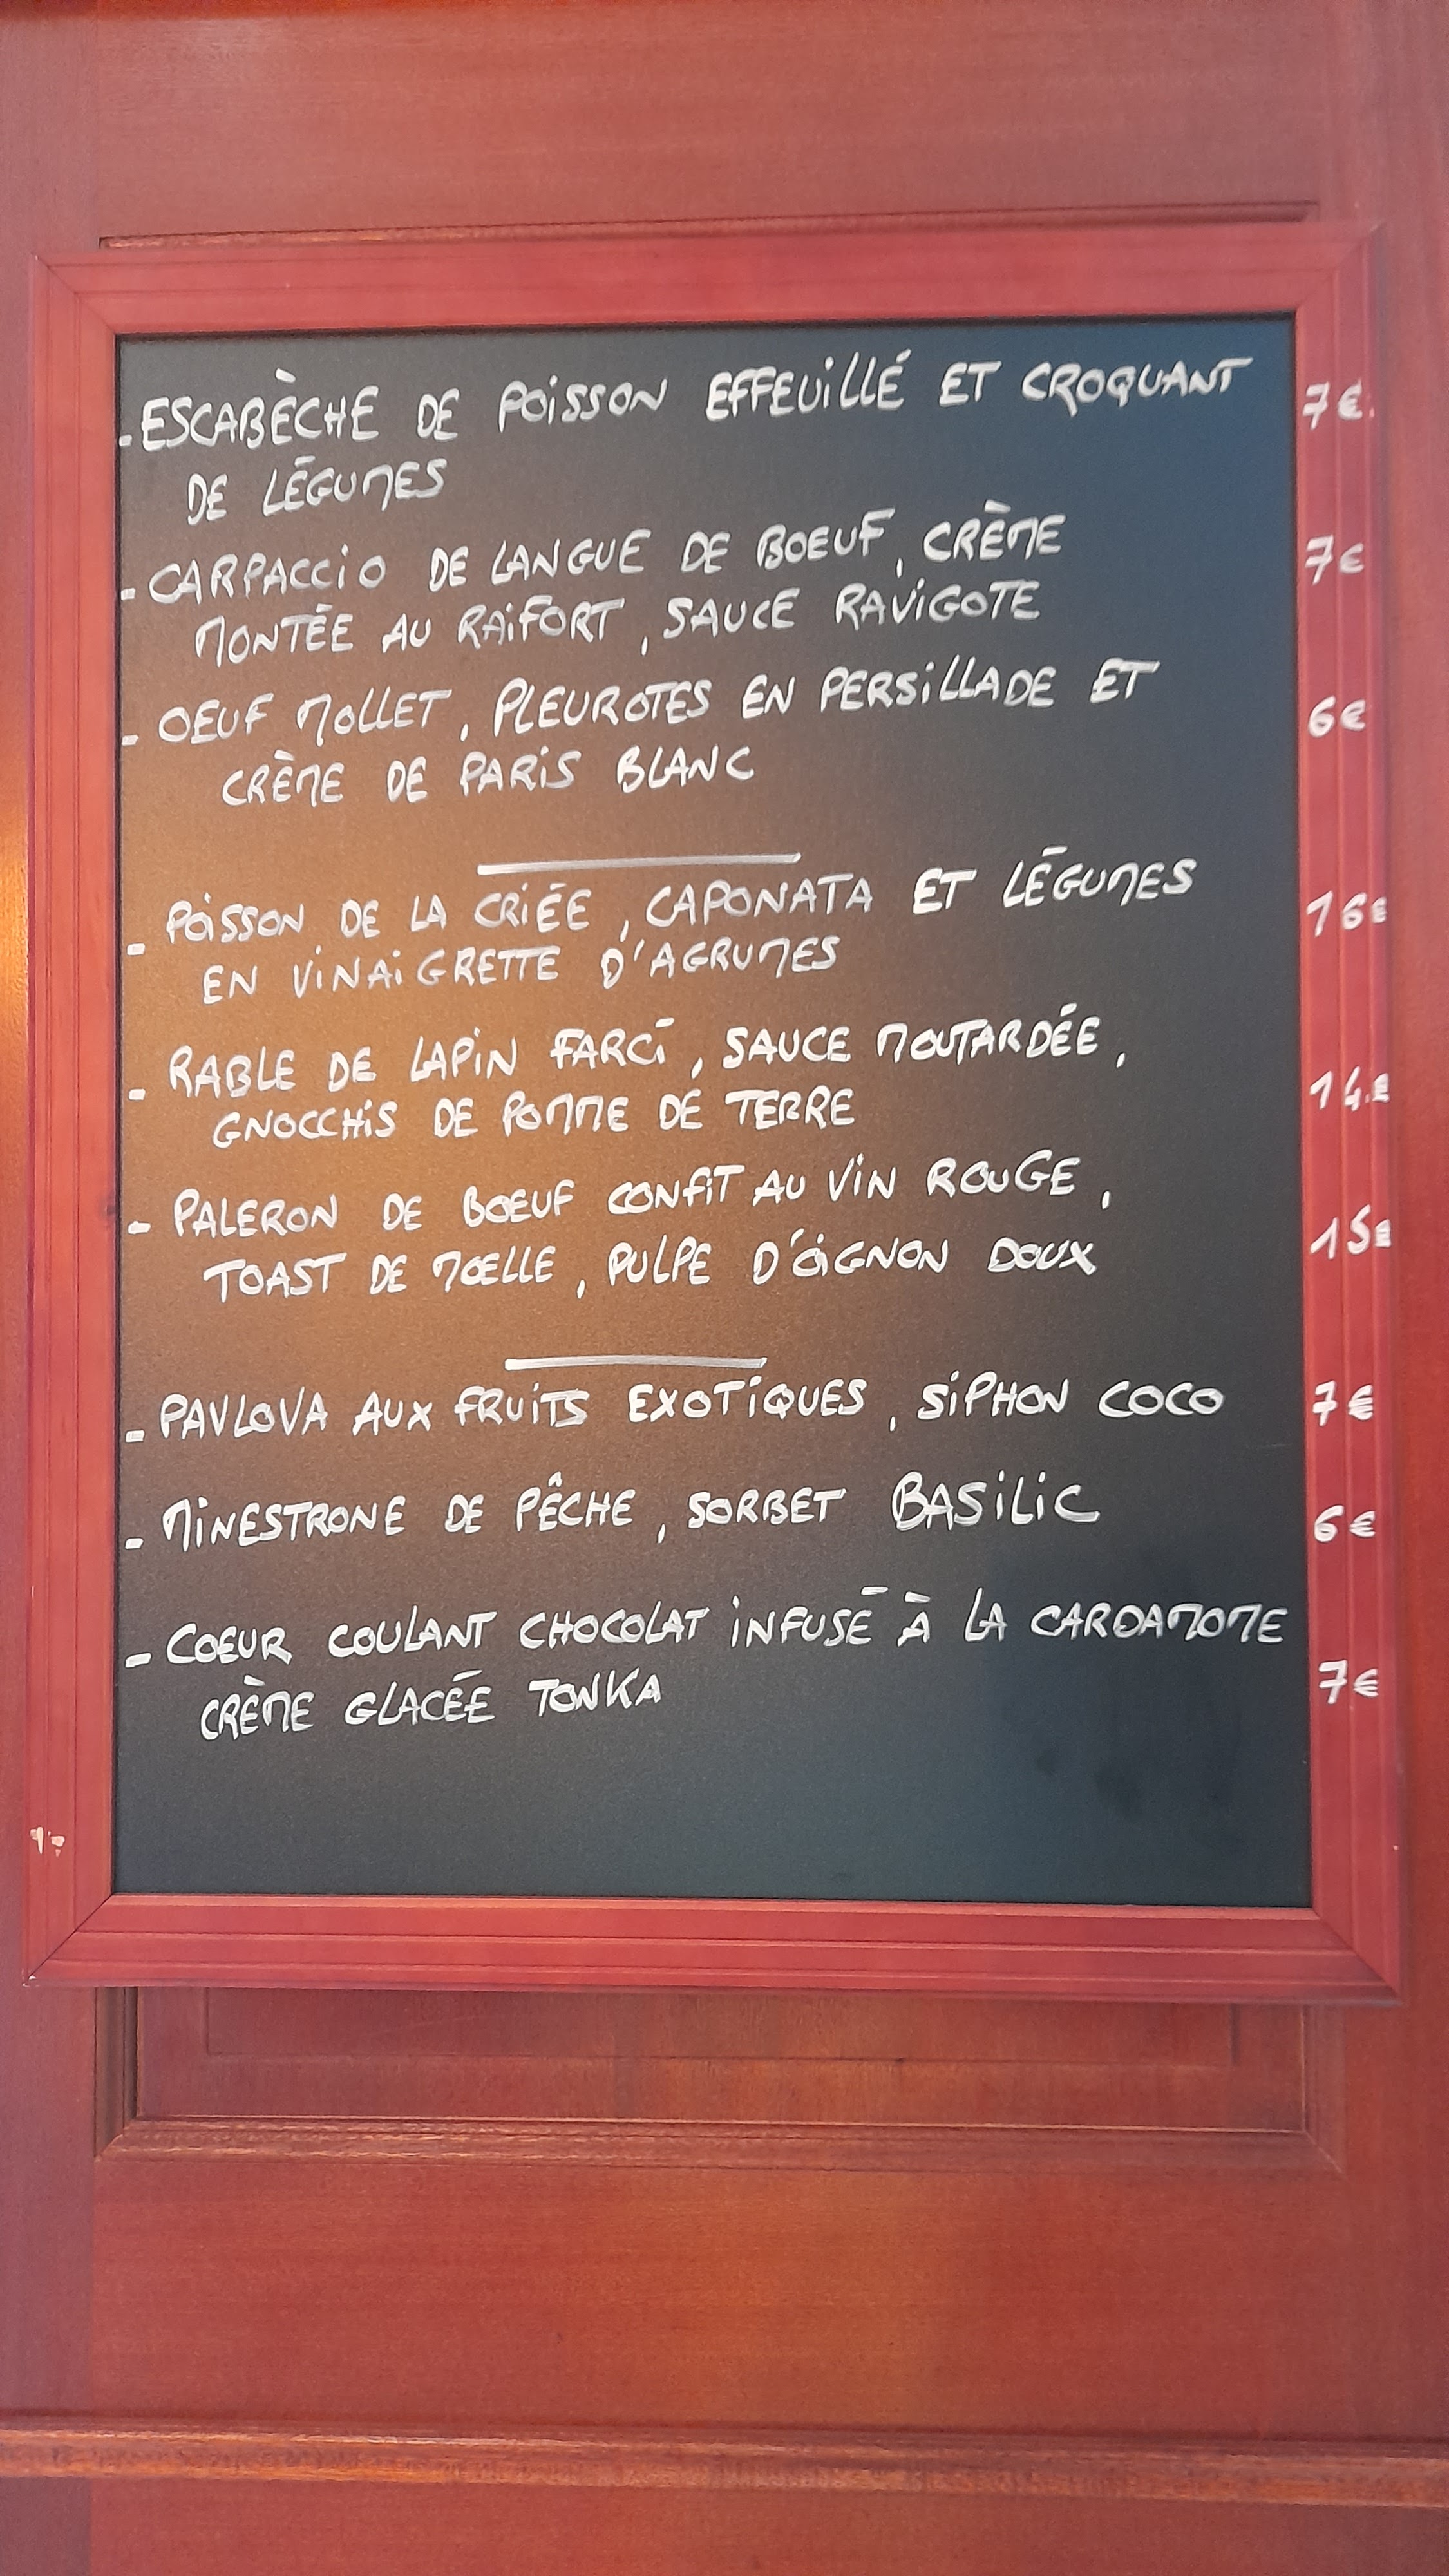 - ESCABÈCHE DE POISSON EFFEUILLÉ ET CROQUANT 7€
DE LÉGUMES
- CARPACCIO DE LANGUE DE BOEUF, CRÈME 7€
MONTÉE AU RAIFORT, SAUCE RAVIGOTE
- OEUF MOLLET, PLEUROTES EN PERSILLADE ET 6€
CRÈME DE PARIS BLANC
- POISSON DE LA CRIÉE, CAPONATA ET LÉGUMES 16€
EN VINAIGRETTE D'AGRUMES
- RABLE DE LAPIN FARCI, SAUCE MOUTARDÉE, 14€
GNOCCHIS DE POMME DE TERRE
- PALERON DE BOEUF CONFIT AU VIN ROUGE, 15€
TOAST DE MOELLE, PULPE D'OIGNON DOUX
- PAVLOVA AUX FRUITS EXOTIQUES, SIPHON COCO 7€
- MINESTRONE DE PÊCHE, SORBET BASILIC 6€
- COEUR COULANT CHOCOLAT INFUSÉ À LA CARDAMOME
CRÈME GLACÉE TONKA 7€